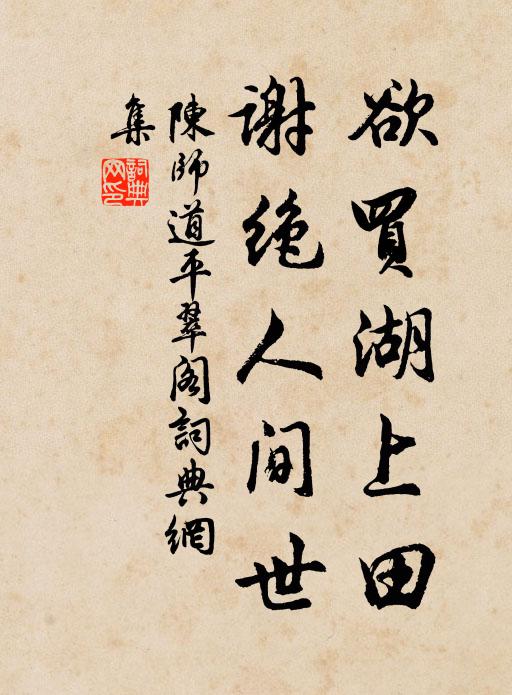 欲買湖上田
謝絶人间世
陳師道平翠阁詞典網
集
詞典
网印